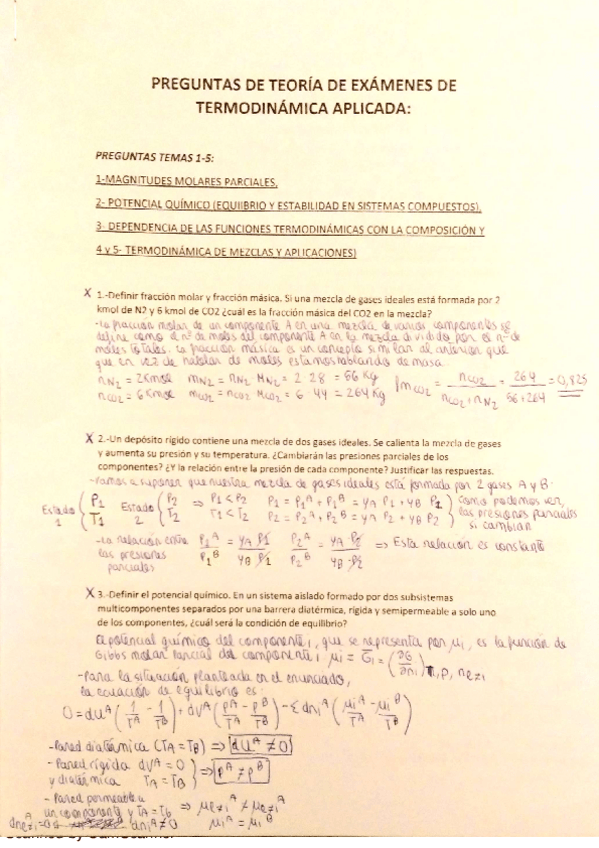 PREGUNTAS DE TEORÍA DE EXÁMENES DE
TERMODINÁMICA APLICADA:
PREGUNTAS TEMAS 1-5:
1-MAGNITUDES MOLARES PARCIALES,
2- POTENCIAL QUÍMICO (EQUIIBRIO Y ESTABILIDAD EN SISTEMAS COMPUESTOS),
3 DEPENDENCIA DE LAS FUNCIONES TERMODINÁMICAS CON LA COMPOSICIÓN Y
4 y 5- TERMODINÁMICA DE MEZCLAS Y APLICACIONES)
X 1.-Definir fracción molar y fracción másica. Si una mezcla de gases ideales está formada por 2
kmol de N2 y 6 kmol de CO2 ¿cuál es la fracción másica del CO2 en la mezcla?
-La fracción molar de un componente A en una mezcla de varios componentes se
define como el nº de moles del componente A en la mezcla dividido por el nº de
moles totales. La fracción másica es un concepto similar al anterior que
que en vez de hablar de moles estamos hablando de masa.
nN2 = 2 Kmol mN2 = nN2 MN2 = 2·28 = 56 Kg fmCO2 = nCO2 / (nCO2 + nN2) = 264 / (56+264) = 0,825
nCO2 = 6 Kmol mCO2 = nCO2 MCO2 = 6·44 = 264 Kg
X 2.-Un depósito rígido contiene una mezcla de dos gases ideales. Se calienta la mezcla de gases
y aumenta su presión y su temperatura. ¿Cambiarán las presiones parciales de los
componentes? ¿Y la relación entre la presión de cada componente? Justificar las respuestas.
-Vamos a suponer que nuestra mezcla de gases ideales está formada por 2 gases A y B:
Estado 1 { P1 T1 Estado 2 { P2 T2 ⇒ P1 < P2 T1 < T2 P1 = P1^A + P1^B = yA P1 + yB P1 } como podemos ver,
P2 = P2^A + P2^B = yA P2 + yB P2 las presiones parciales
si cambian
-La relación entre P1^A / P1^B = yA P1 / yB P1 P2^A / P2^B = yA P2 / yB P2 ⇒ Esta relación es constante
las presiones
parciales
X 3.-Definir el potencial químico. En un sistema aislado formado por dos subsistemas
multicomponentes separados por una barrera diatérmica, rígida y semipermeable a solo uno
de los componentes, ¿cuál será la condición de equilibrio?
El potencial químico del componente i, que se representa por μi, es la función de
Gibbs molar parcial del componente i μi = Gi = (∂G/∂ni) T, P, n
-Para la situación planteada en el enunciado,
la ecuación de equilibrio es:
0 = dU^A (1/T^A - 1/T^B) + dV^A (P^A/T^A - P^B/T^B) - Σ dni^A (μi^A/T^A - μi^B/T^B)
-Pared diatérmica (TA = TB) ⇒ dU^A ≠ 0
-Pared rígida dV^A = 0
y diatérmica TA = TB } ⇒ P^A ≠ P^B
-Pared permeable a
un componente y TA = Tb ⇒
dni^A ≠ 0 μi^A = μi^B